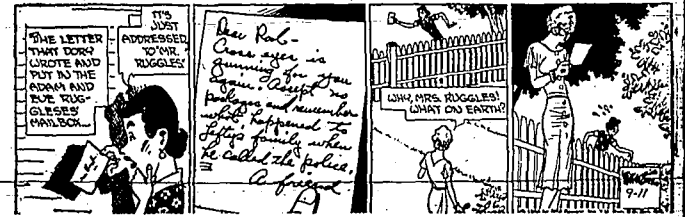 "THE LETTER
THAT DORY
WROTE AND
PUT IN THE
ADAM AND
EVE RUG-
GLESES'
MAILBOX...
IT'S
JUST
ADDRESSED
TO "MR.
RUGGLES"
Dear Rob-
Cross eyes is
gunning for you
again. Accept no
packages and remember
what happened to
Lefty's family when
he called the police.
A friend
WHY, MRS. RUGGLES!
WHAT ON EARTH?
9-11